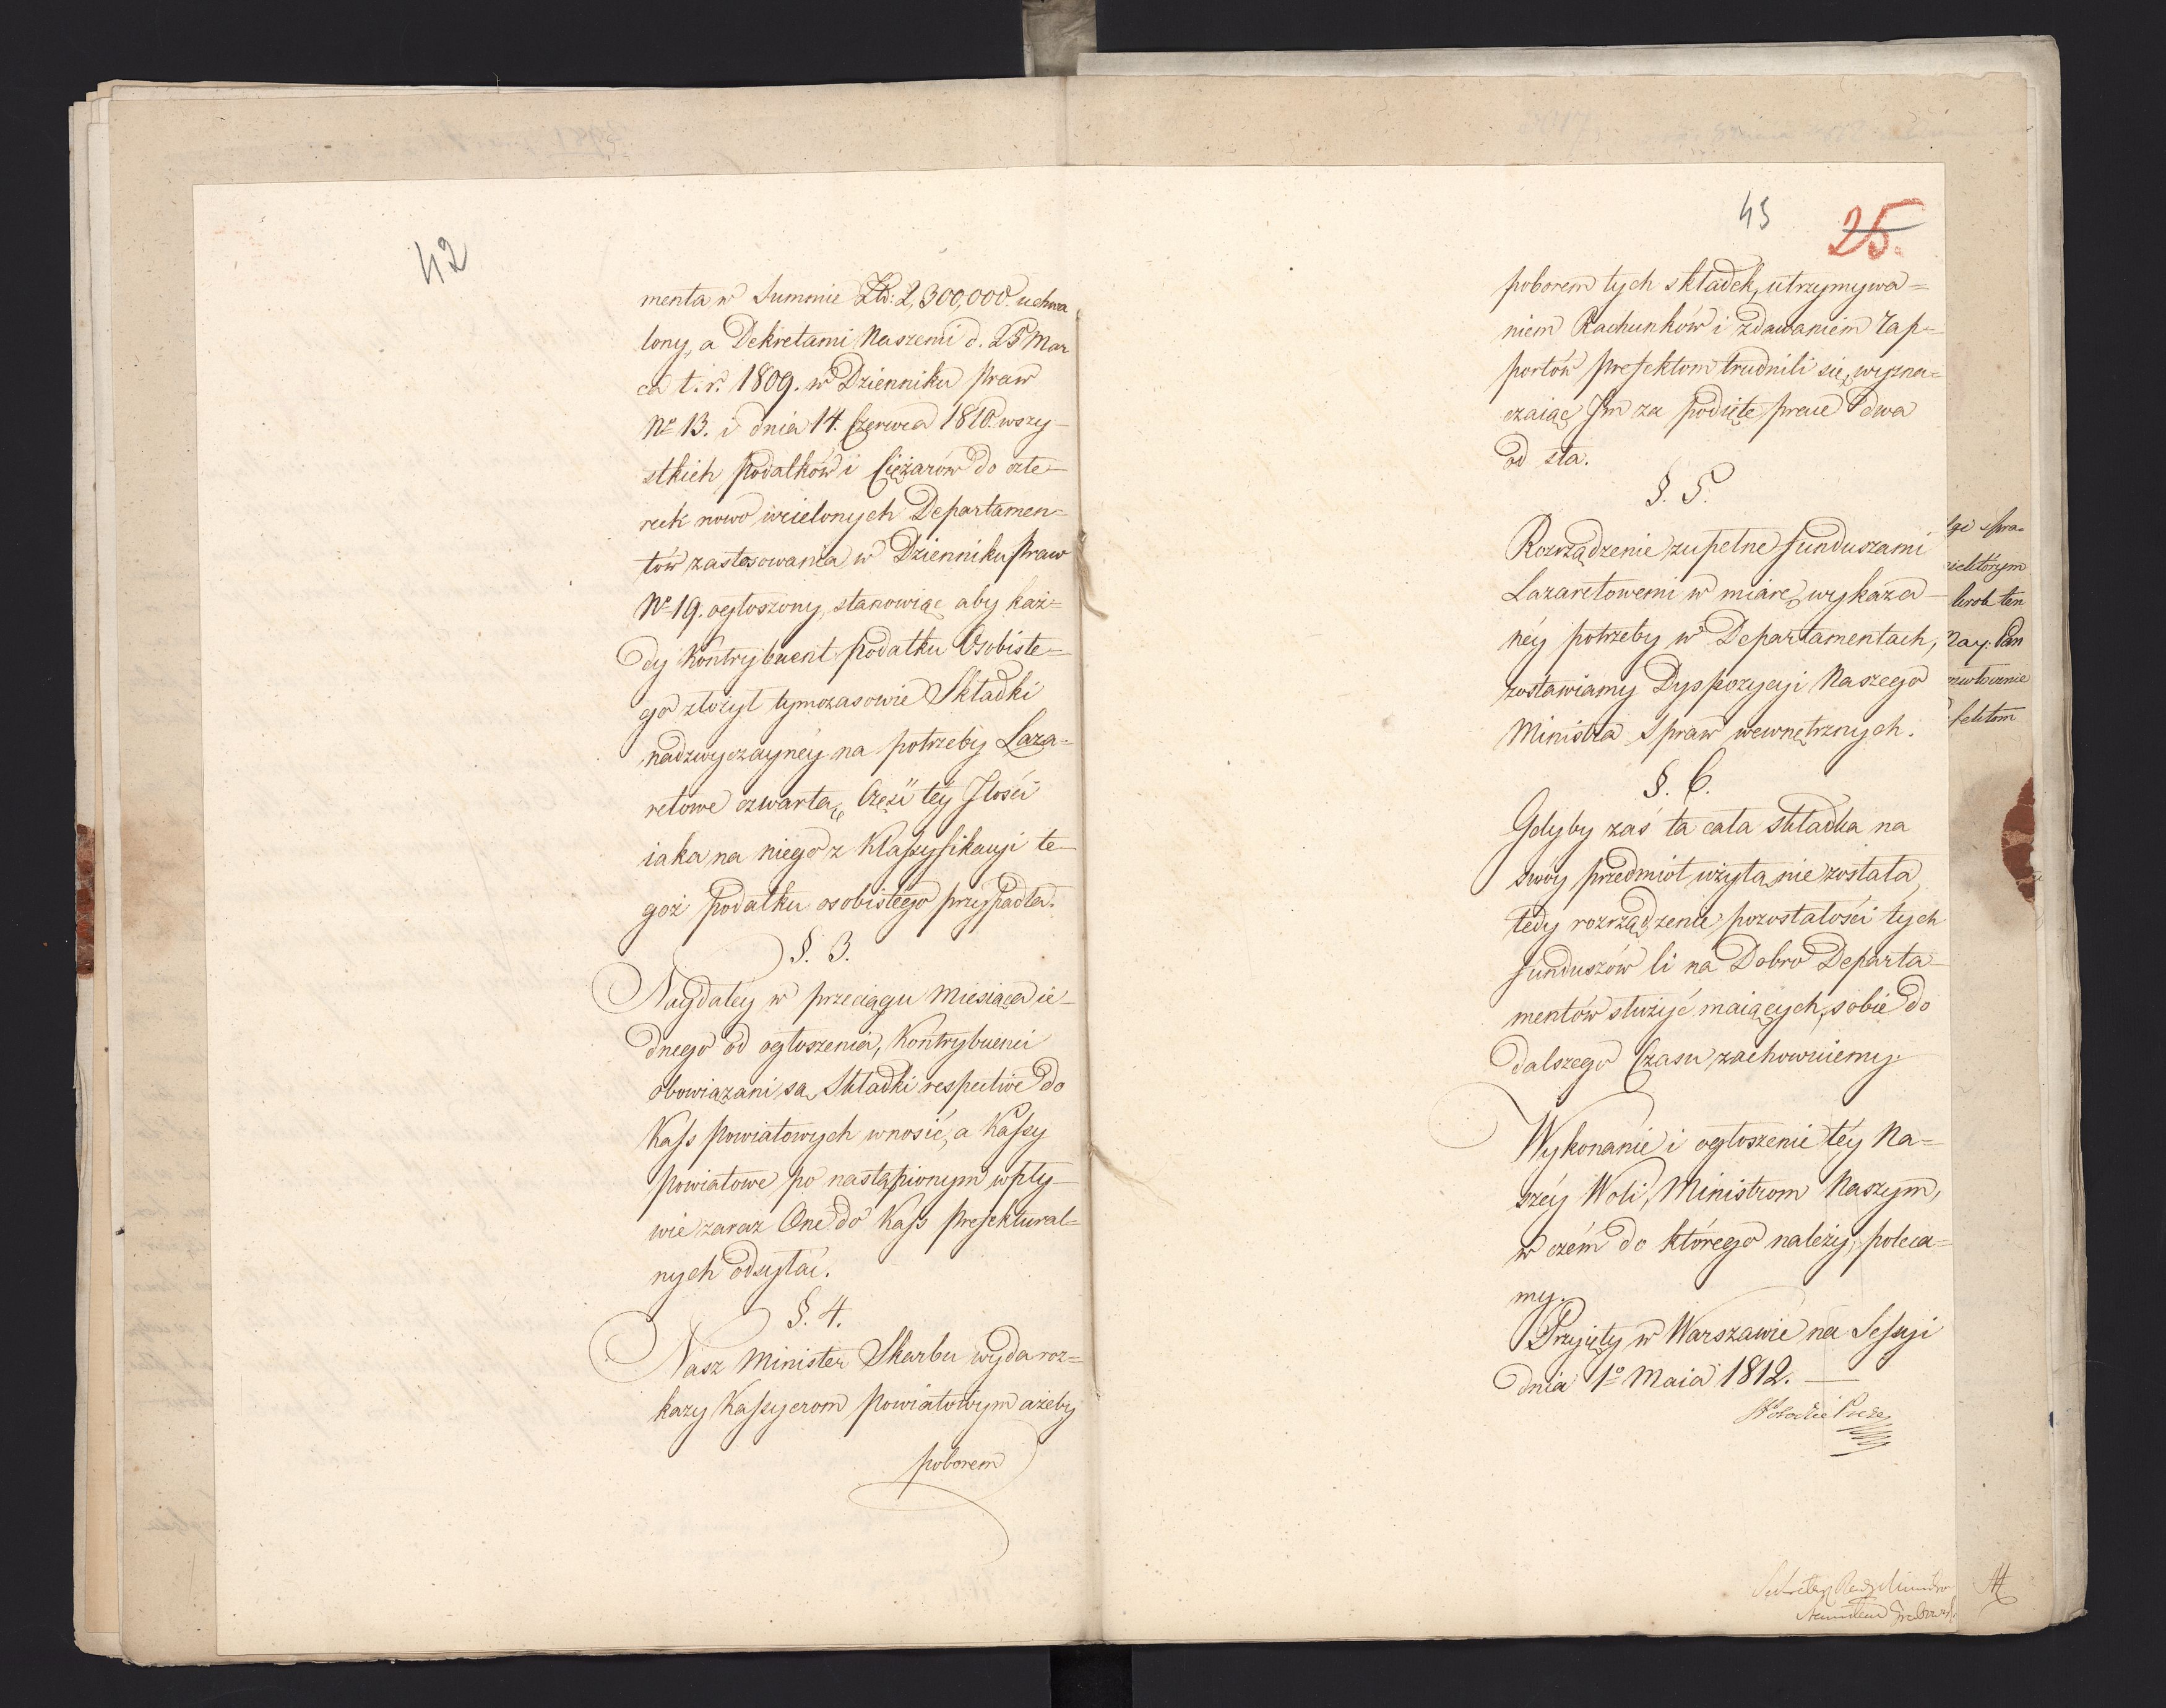 42
menta w Summie Zło: 2,300,000. uchwa
lony, a Dekretami Naszemi d. 25 Mar
ca t. r. 1809. w Dzienniku Praw
No 13. i dnia 14. Czerwca 1810. wszy-
stkich Podatków i Ciężarów do czte-
rech nowo wcielonych Departamen=
tów zastosowania w Dzienniku Praw
No 19. ogłoszony, stanowiąc aby każ=
dy Kontrybuent Podatku Osobiste=
go złożył tymczasowie Składki
nadzwyczayney na potrzeby Laza=
retowe czwartą Część téy Jlości
iaka na niego z Klassyfikacyi te-
goż Podatku osobistego przypadła.
§. 3.
Naydaléy w przeciągu Miesiąca ie-
dnego od ogłoszenia, Kontrybuenci
obowiązani są Składki respective do
Kass Powiatowych wnosić, a Kassy
Powiatowe po nastąpionym wpły-
wie zaraz One do Kass Prefektural=
nych odsyłać.
§. 4.
Nasz Minister Skarbu wyda roz=
kazy Kassyerom Powiatowym ażeby
poborem
43 25.
poborem tych składek, utrzymywa=
niem Rachunków i zdawaniem Rap=
portów Prefektom trudnili się, wyzna=
czaiąc Jm za podięte prace dwa
od sta.
§. 5.
Rozrządzenie zupełne funduszami
Lazaretowemi w miarę wykaza-
néy potrzeby w Departamentach,
zostawiamy Dyspozycyi Naszego
Ministra Spraw wewnętrznych.
§. 6.
Gdyby zaś ta cała składka na
swóy przedmiót użytą nie została,
tedy rozrządzenie pozostałości tych
funduszów li na Dobro Departa-
mentów służyć maiących, sobie do
dalszego Czasu zachowuiemy.
Wykonanie i ogłoszenie téy Na=
széy Woli, Ministrom Naszym,
w czém do którego należy, poleca=
my.
Przyięty w Warszawie na Sessyi
dnia 1o Maia 1812.
Sekretarz Rady Ministrów